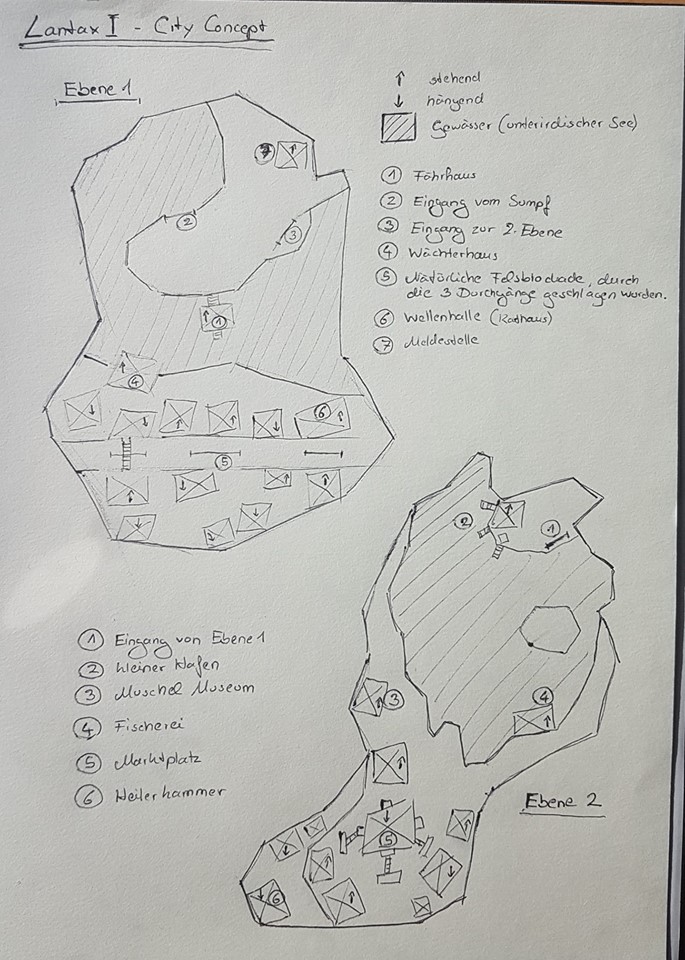 Lantax I - City Concept
Ebene 1
↑ stehend
↓ hängend
Gewässer (unterirdischer See)
① Fährhaus
② Eingang vom Sumpf
③ Eingang zur 2. Ebene
④ Wächterhaus
⑤ Natürliche Felsblockade, durch
die 3 Durchgänge geschlagen wurden.
⑥ Wellenhalle (Rathaus)
⑦ Meldestelle
7
2
3
1
4
6
5
① Eingang von Ebene 1
② kleiner Hafen
③ Muschel Museum
④ Fischerei
⑤ Marktplatz
⑥ Heilerkammer
2
1
3
4
Ebene 2
5
6